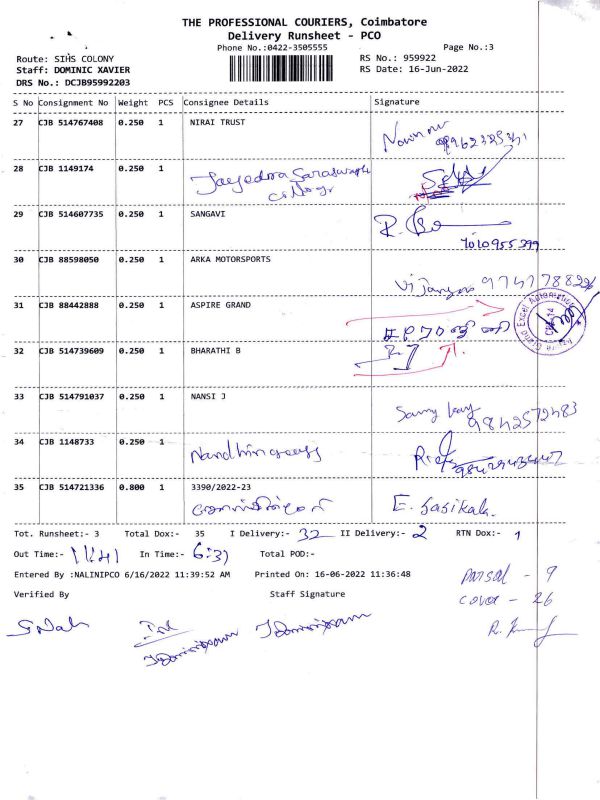 THE PROFESSIONAL COURIERS, Coimbatore
Delivery Runsheet - PCO
Phone No.:0422-3505555 Page No.:3
Route: SIHS COLONY RS No.: 959922
Staff: DOMINIC XAVIER RS Date: 16-Jun-2022
DRS No.: DCJB95992203
S No Consignment No Weight PCS Consignee Details Signature
27 CJB 514767408 0.250 1 NIRAI TRUST
28 CJB 1149174 0.250 1
29 CJB 514607735 0.250 1 SANGAVI
7010955299
30 CJB 88598050 0.250 1 ARKA MOTORSPORTS
31 CJB 88442888 0.250 1 ASPIRE GRAND
32 CJB 514739609 0.250 1 BHARATHI B
33 CJB 514791037 0.250 1 NANSI J
9842572483
34 CJB 1148733 0.250 1
35 CJB 514721336 0.800 1 3390/2022-23
E. Sasikala.
Tot. Runsheet:- 3 Total Dox:- 35 I Delivery:- 32 II Delivery:- 2 RTN Dox:- 1
Out Time:- 11:41 In Time:- 6:31 Total POD:-
Entered By :NALINIPCO 6/16/2022 11:39:52 AM Printed On: 16-06-2022 11:36:48
Parsal - 9
Verified By Staff Signature
cover - 26